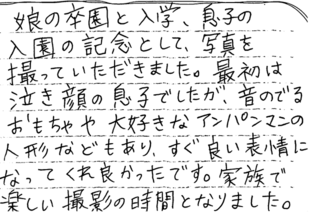 娘の卒園と入学、息子の
入園の記念として、写真を
撮っていただきました。最初は
泣き顔の息子でしたが、音のでる
おもちゃや大好きなアンパンマンの
人形などもあり、すぐ良い表情に
なってくれ良かったです。家族で
楽しい撮影の時間となりました。